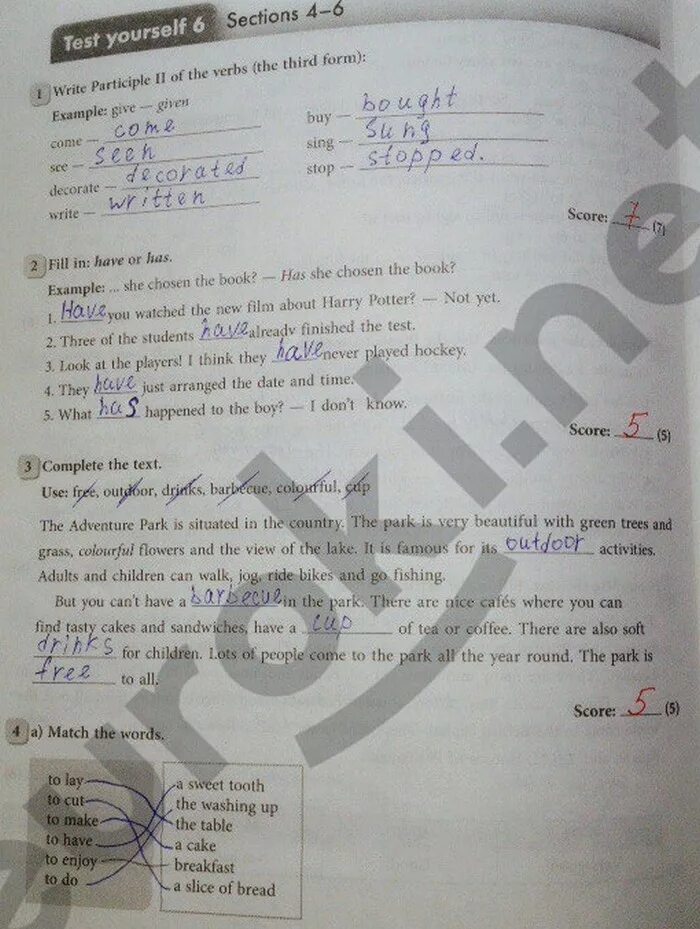 Test yourself 6 Sections 4–6
1 Write Participle II of the verbs (the third form):
Example: give — given
come — come
see — seen
decorate — decorated
write — written
buy — bought
sing — sung
stop — stopped.
Score: 7 (7)
2 Fill in: have or has.
Example: ... she chosen the book? — Has she chosen the book?
1. Have you watched the new film about Harry Potter? — Not yet.
2. Three of the students have already finished the test.
3. Look at the players! I think they have never played hockey.
4. They have just arranged the date and time.
5. What has happened to the boy? — I don't know.
Score: 5 (5)
3 Complete the text.
Use: free, outdoor, drinks, barbecue, colourful, cup
The Adventure Park is situated in the country. The park is very beautiful with green trees and
grass, colourful flowers and the view of the lake. It is famous for its outdoor activities.
Adults and children can walk, jog, ride bikes and go fishing.
But you can't have a barbecue in the park. There are nice cafés where you can
find tasty cakes and sandwiches, have a cup of tea or coffee. There are also soft
drinks for children. Lots of people come to the park all the year round. The park is
free to all.
Score: 5 (5)
4 a) Match the words.
to lay
to cut
to make
to have
to enjoy
to do
a sweet tooth
the washing up
the table
a cake
breakfast
a slice of bread
euroki.net